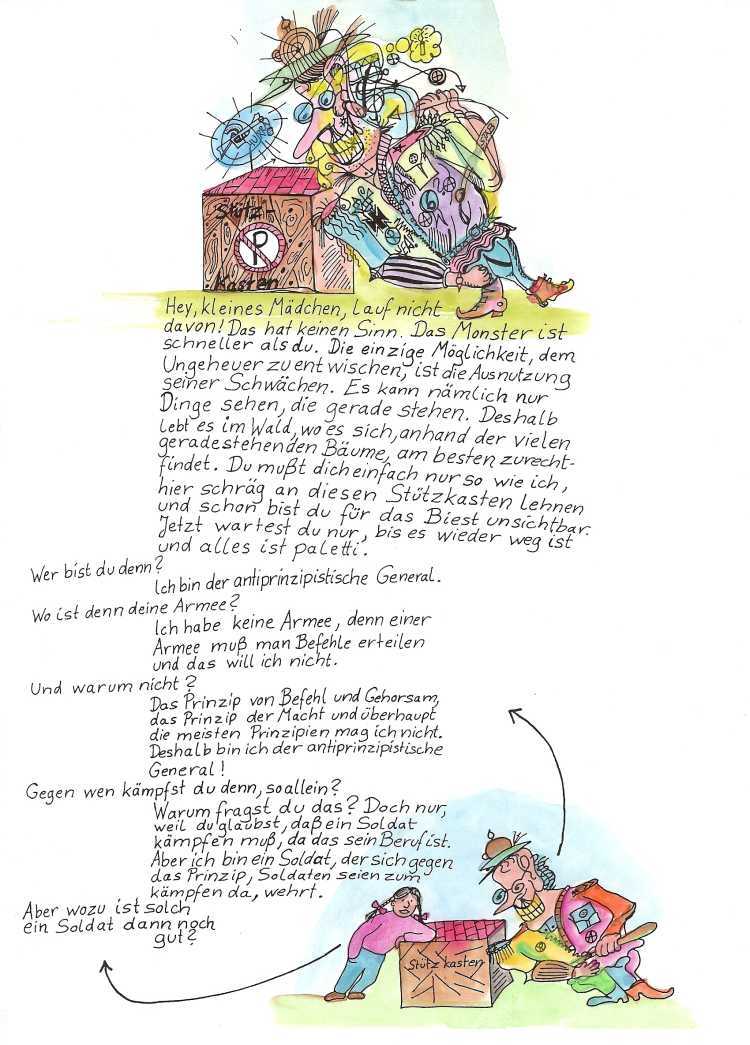 Stütz-
P
kasten
Hey, kleines Mädchen, lauf nicht
davon! Das hat keinen Sinn. Das Monster ist
schneller als du. Die einzige Möglichkeit, dem
Ungeheuer zu entwischen, ist die Ausnutzung
seiner Schwächen. Es kann nämlich nur
Dinge sehen, die gerade stehen. Deshalb
lebt es im Wald, wo es sich, anhand der vielen
geradestehenden Bäume, am besten zurecht-
findet. Du mußt dich einfach nur so wie ich,
hier schräg an diesen Stützkasten lehnen
und schon bist du für das Biest unsichtbar.
Jetzt wartest du nur, bis es wieder weg ist
und alles ist paletti.
Wer bist du denn?
Ich bin der antiprinzipistische General.
Wo ist denn deine Armee?
Ich habe keine Armee, denn einer
Armee muß man Befehle erteilen
und das will ich nicht.
Und warum nicht?
Das Prinzip von Befehl und Gehorsam,
das Prinzip der Macht und überhaupt
die meisten Prinzipien mag ich nicht.
Deshalb bin ich der antiprinzipistische
General!
Gegen wen kämpfst du denn, so allein?
Warum fragst du das? Doch nur,
weil du glaubst, daß ein Soldat
kämpfen muß, da das sein Beruf ist.
Aber ich bin ein Soldat, der sich gegen
das Prinzip, Soldaten seien zum
kämpfen da, wehrt.
Aber wozu ist solch
ein Soldat dann noch
gut?
Stützkasten